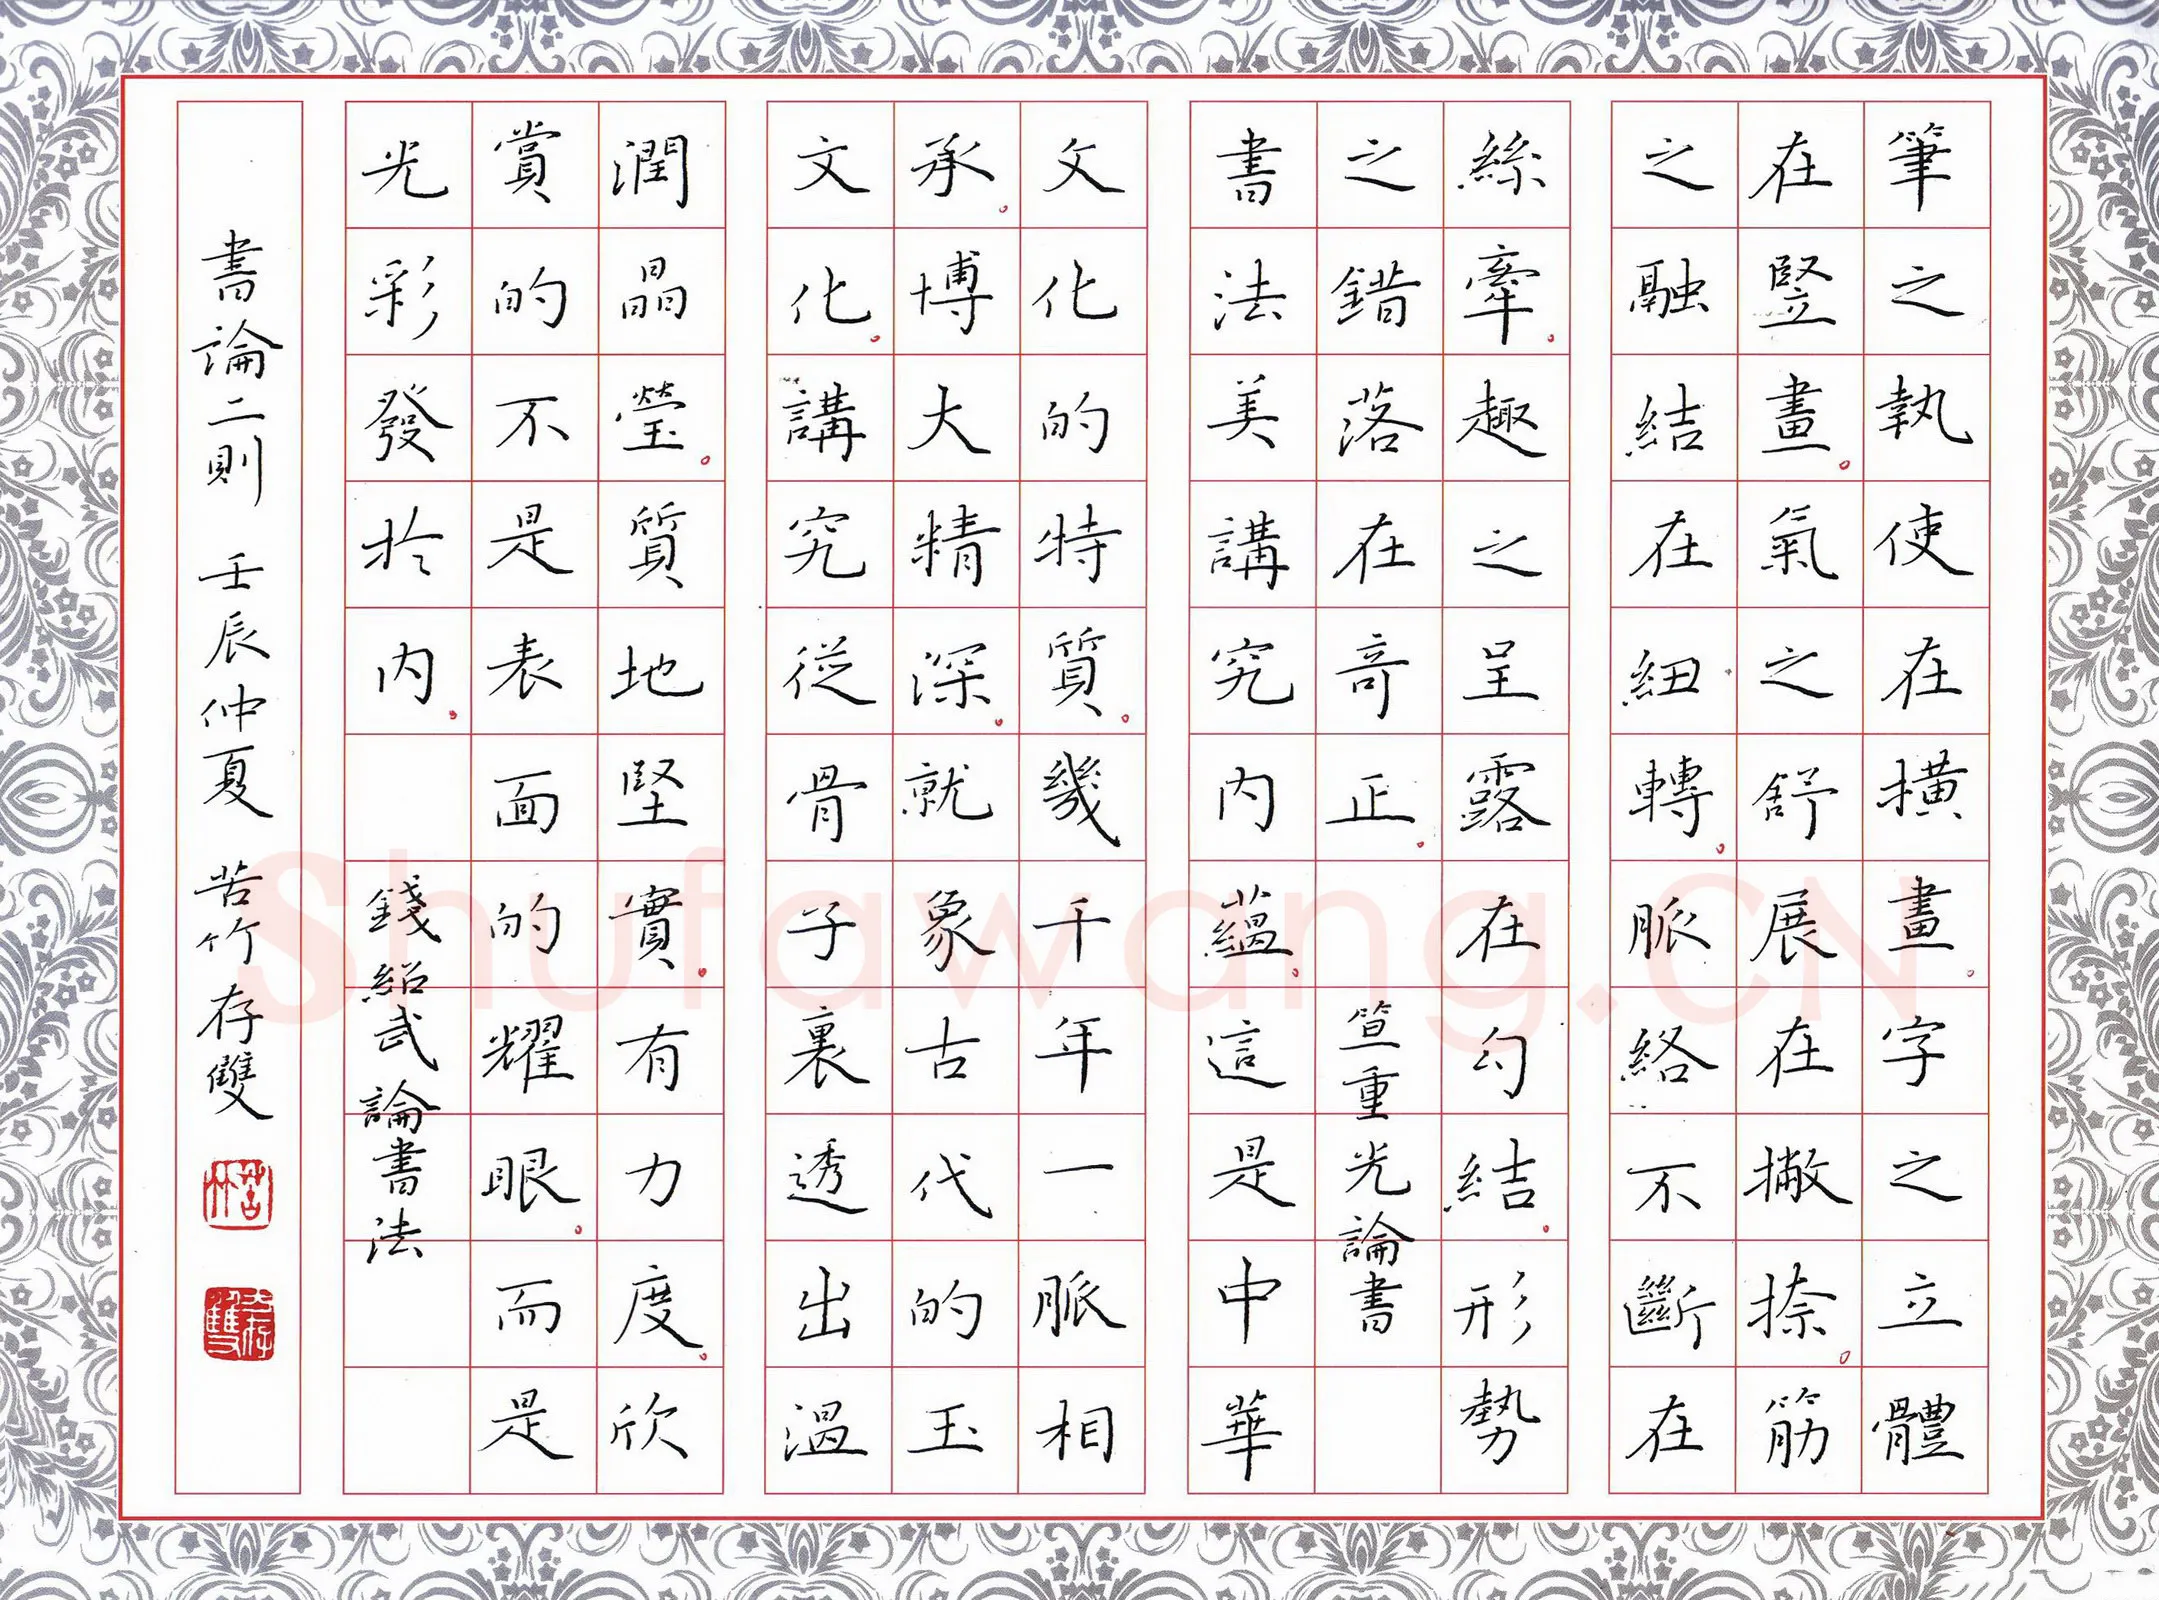 筆之執使在橫畫。字之立體
在豎畫。氣之舒展在撇捺。筋
之融結在紐轉。脈絡不斷在
絲牽。趣之呈露在勾結。形勢
之錯落在奇正。笪重光論書
書法美講究內蘊。這是中華
文化的特質。幾千年一脈相
承。博大精深。就象古代的玉
文化。講究從骨子裏透出溫
潤晶瑩。質地堅實。有力度。欣
賞的不是表面的耀眼。而是
光彩發於內。錢紹武論書法
書論二則 壬辰仲夏 苦竹存雙
苦竹
Shufawang.CN